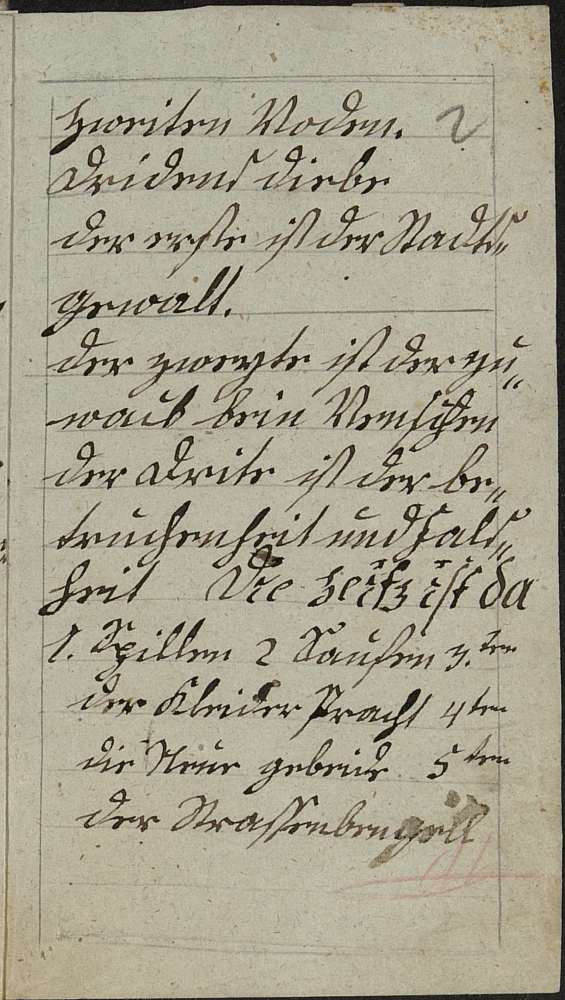 zweiten Boden. 2
Dridens diebe
der erste ist der Stadts„
gewalt.
der zweyte ist der zu„
wacks bein Menschen
der Drite ist der be„
truchenheit und fals„
heit Die zeitz ist da
1. Spillen 2 Saufen 3.ten
der Kleider Pracht 4ten
die Neue gebeide 5ten
der Strassenbengell